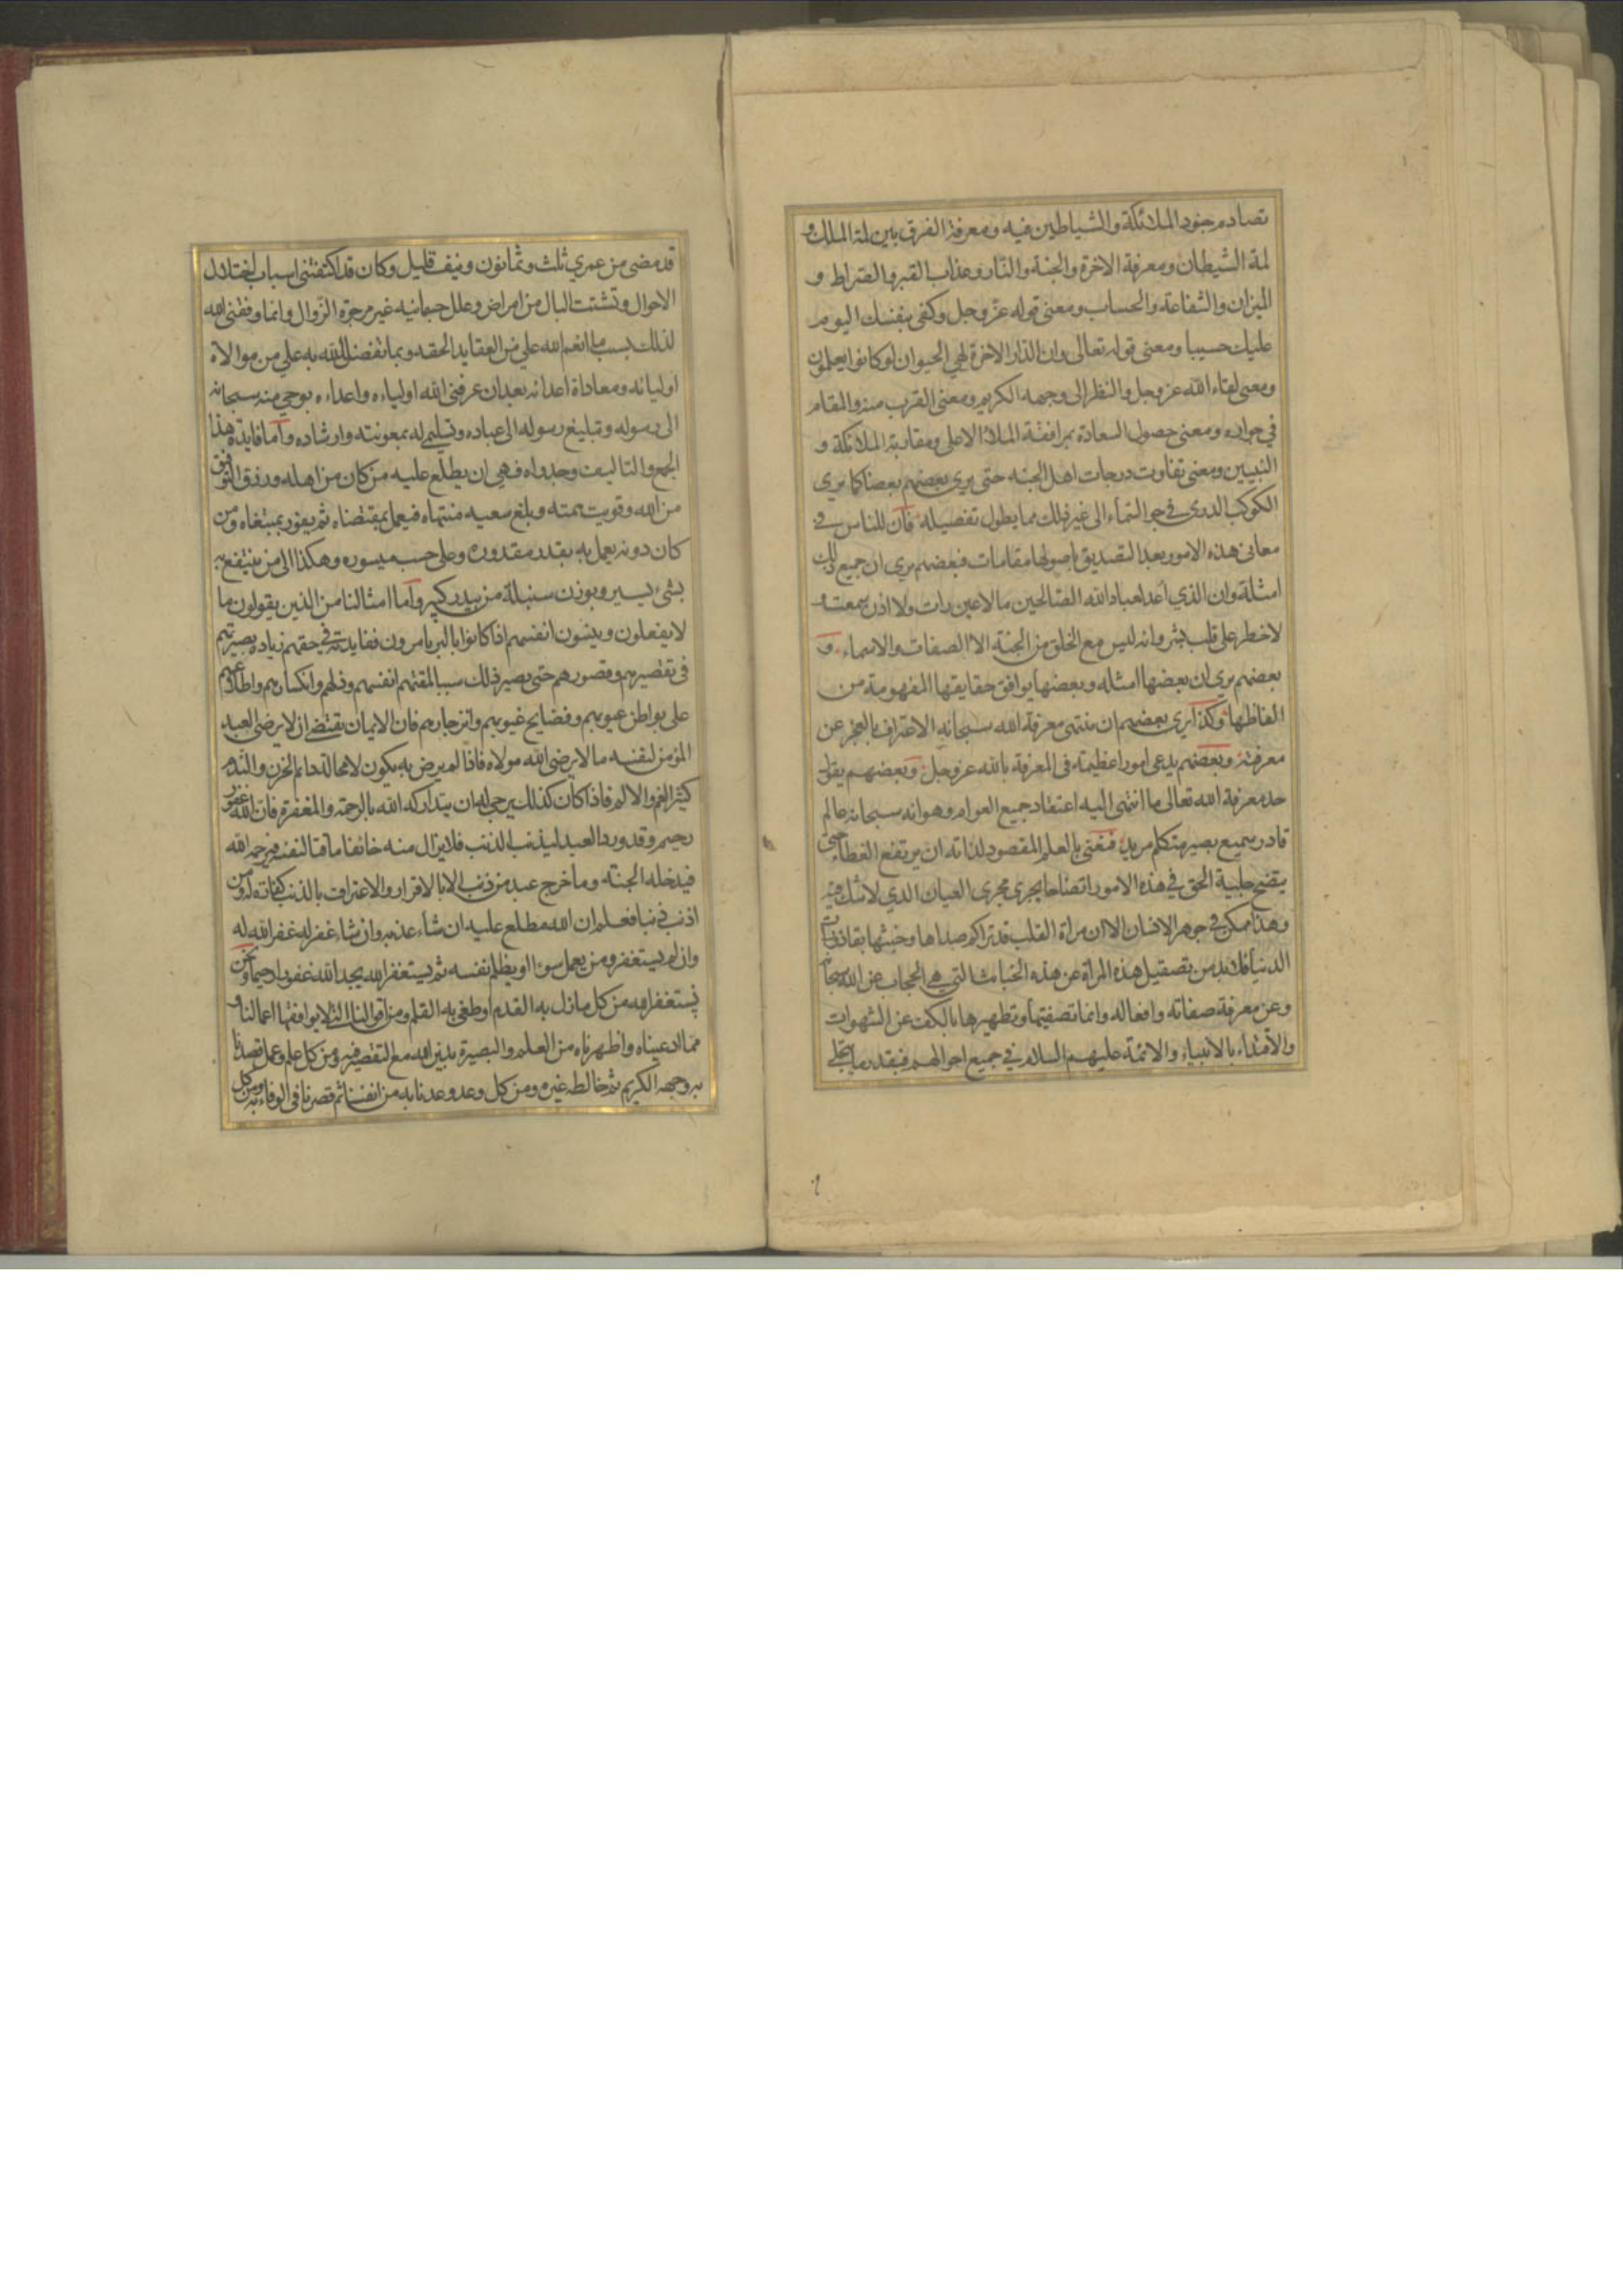 تصادم جنود الملائكة والشياطين فيه ومعرفة الفرق بين لمة الملك و
لمة الشيطان ومعرفة الاخرة والجنة والنار وعذاب القبر والصراط و
الميزان والشفاعة والحساب ومعنى قوله عز وجل وكفى بنفسك اليوم
عليك حسيبا ومعنى قوله تعالى وان الدار الاخرة لهي الحيوان لو كانوا يعلمون
ومعنى لقاء الله عز وجل والنظر الى وجهه الكريم ومعنى القرب منه والمقام
في جواره ومعنى حصول السعادة بمرافقة الملأ الاعلى ومقارنة الملائكة و
النبيين ومعنى تفاوت درجات اهل الجنه حتى يرى بعضهم بعضا كما يرى
الكوكب الدري في جو السماء الى غير ذلك مما يطول تفصيله فان للناس في
معاني هذه الامور بعد التصديق باصولها مقامات فبعضهم يرى ان جميع ذلك
امثلة وان الذي اعد لعباد الله الصالحين ما لا عين رات ولا اذن سمعت و
لا خطر على قلب بشر وانه ليس مع الخلق من الجنة الا الصفات والاسماء و
بعضهم يرى ان بعضها امثله وبعضها يوافق حقايقها المفهومة من
الفاظها وكذا يرى بعضهم ان منتهى معرفة الله سبحانه الاعتراف بالعجز عن
معرفته وبعضهم يدعى امورا عظيمة في المعرفة بالله عز وجل وبعضهم يقول
حد معرفة الله تعالى ما انتهى اليه اعتقاد جميع العوام وهو انه سبحانه عالم
قادر سميع بصير متكلم مريد فنعني بالعلم المقصود لذاته ان يرتفع الغطاء حتى
يتضح جلية الحق في هذه الامور اتضاحا يجرى مجرى العيان الذي لا شك فيه
وهذا ممكن في جوهر الانسان الا ان مراة القلب قد تراكم صداها وخبثها بقاذورات
الدنيا فلا بد من تصقيل هذه المراة عن هذه الخبائث التي هي الحجاب عن الله سبحانه
وعن معرفة صفاته وافعاله وانما تصفيتها وتطهيرها بالكف عن الشهوات
والاقتداء بالانبياء والائمة عليهم السلام في جميع احوالهم فبقدر ما ينجلي
قد مضى من عمري ثلث وثمانون ونيف قليل وكان قد اكتنفتني اسباب اختلال
الاحوال وتشتت البال من امراض وعلل جسمانيه غير مرجوة الزوال وانما وفقني الله
لذلك بسبب ما انعم الله علي من العقايد الحقه وبما تفضل الله به علي من موالاة
اوليائه ومعاداة اعدائه بعد ان عرفني الله اولياءه واعداءه بوحي منه سبحانه
الى رسوله وتبليغ رسوله الى عباده وتسليم له بمعونته وارشاده واما فايدة هذا
الجمع والتاليف وجدواه فهي ان يطلع عليه من كان من اهله ورزق التوفيق
من الله وقويت همته وبلغ سعيه منتهاه فيعمل بمقتضاه ثم يفوز بمبتغاه ومن
كان دونه يعمل به بقدر مقدوره وعلى حسب ميسوره وهكذا الى من ينتفع به
بشيء يسير وبوزن سنبلة من بيدر كبير واما امثالنا من الذين يقولون ما
لا يفعلون وينسون انفسهم اذا كانوا بالبر يامرون ففايدته في حقهم زياده بصيرتهم
في تقصيرهم وقصورهم حتى يصير ذلك سببا لمقتهم انفسهم وذلهم وانكسارهم واطلاعهم
على بواطن عيوبهم وفضايح غيوبهم وانزجارهم فان الايمان يقتضي ان لا يرضى العبد
المؤمن لنفسه ما لا يرضى الله مولاه فاذا لم يرض به يكون لا محالة دائم الحزن والندم
كثير الغم والالم فاذا كان كذلك يرجى له ان يتداركه الله بالرحمة والمغفرة فان الله غفور
رحيم وقد ورد ان العبد ليذنب الذنب فلا يزال منه خائفا ماقتا لنفسه فيرحمه الله
فيدخله الجنة وما خرج عبد من ذنب الا بالاقرار والاعتراف بالذنب كفارته له ومن
اذنب ذنبا فعلم ان الله مطلع عليه ان شاء عذبه وان شاء غفر له غفر الله له
وان لم يستغفر ومن يعمل سوءا او يظلم نفسه ثم يستغفر الله يجد الله غفورا رحيما ونحن
نستغفر الله من كل ما زل به القدم او طغى به القلم ومن اقوالنا التي لا يوافقها اعمالنا و
مما ادعيناه واظهرناه من العلم والبصيرة بدين الله مع التقصير فيه ومن كل علم وعمل قصدنا
به وجهه الكريم ثم خالطه غيره ومن كل وعد وعدنا به من انفسنا ثم قصرنا في الوفاء به ومن كل